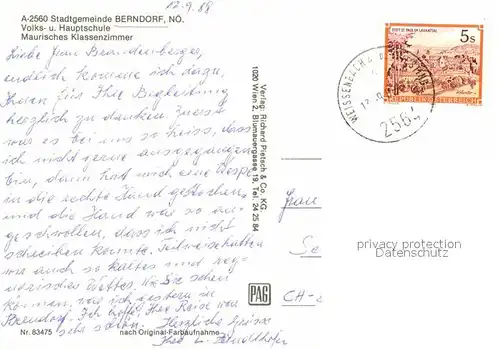 12.9.88
A-2560 Stadtgemeinde BERNDORF, NÖ.
Volks- u. Hauptschule
Maurisches Klassenzimmer
Liebe Frau Brandenberger,
endlich komme ich dazu,
Ihnen für Ihre Begleitung
herzlich zu danken. Zuerst
war es bei uns so heiss, dass
ich nicht gerne ausgegangen
bin, dann hat mich eine Wespe
in die rechte Hand gestochen
und die Hand war so an-
geschwollen, dass ich nicht
schreiben konnte. Teilweise hatten
wir auch so kaltes und reg-
nerisches Wetter. Wie Sie sehen
können, war ich gestern in
Berndorf. Ich hoffe, Ihre Reise war
sehr schön. Herzliche Grüsse
Ihre
Nr. 83475
nach Original-Farbaufnahme
Verlag: Richard Pietsch & Co. KG.
1020 Wien 2, Blumauergasse 19, Tel. 24 25 84
PAG
STIFT ST. PAUL IM LAVANTTAL
5s
REPUBLIK ÖSTERREICH
WEISSENBACH
2564
Frau
CH-
privacy protection
Datenschutz